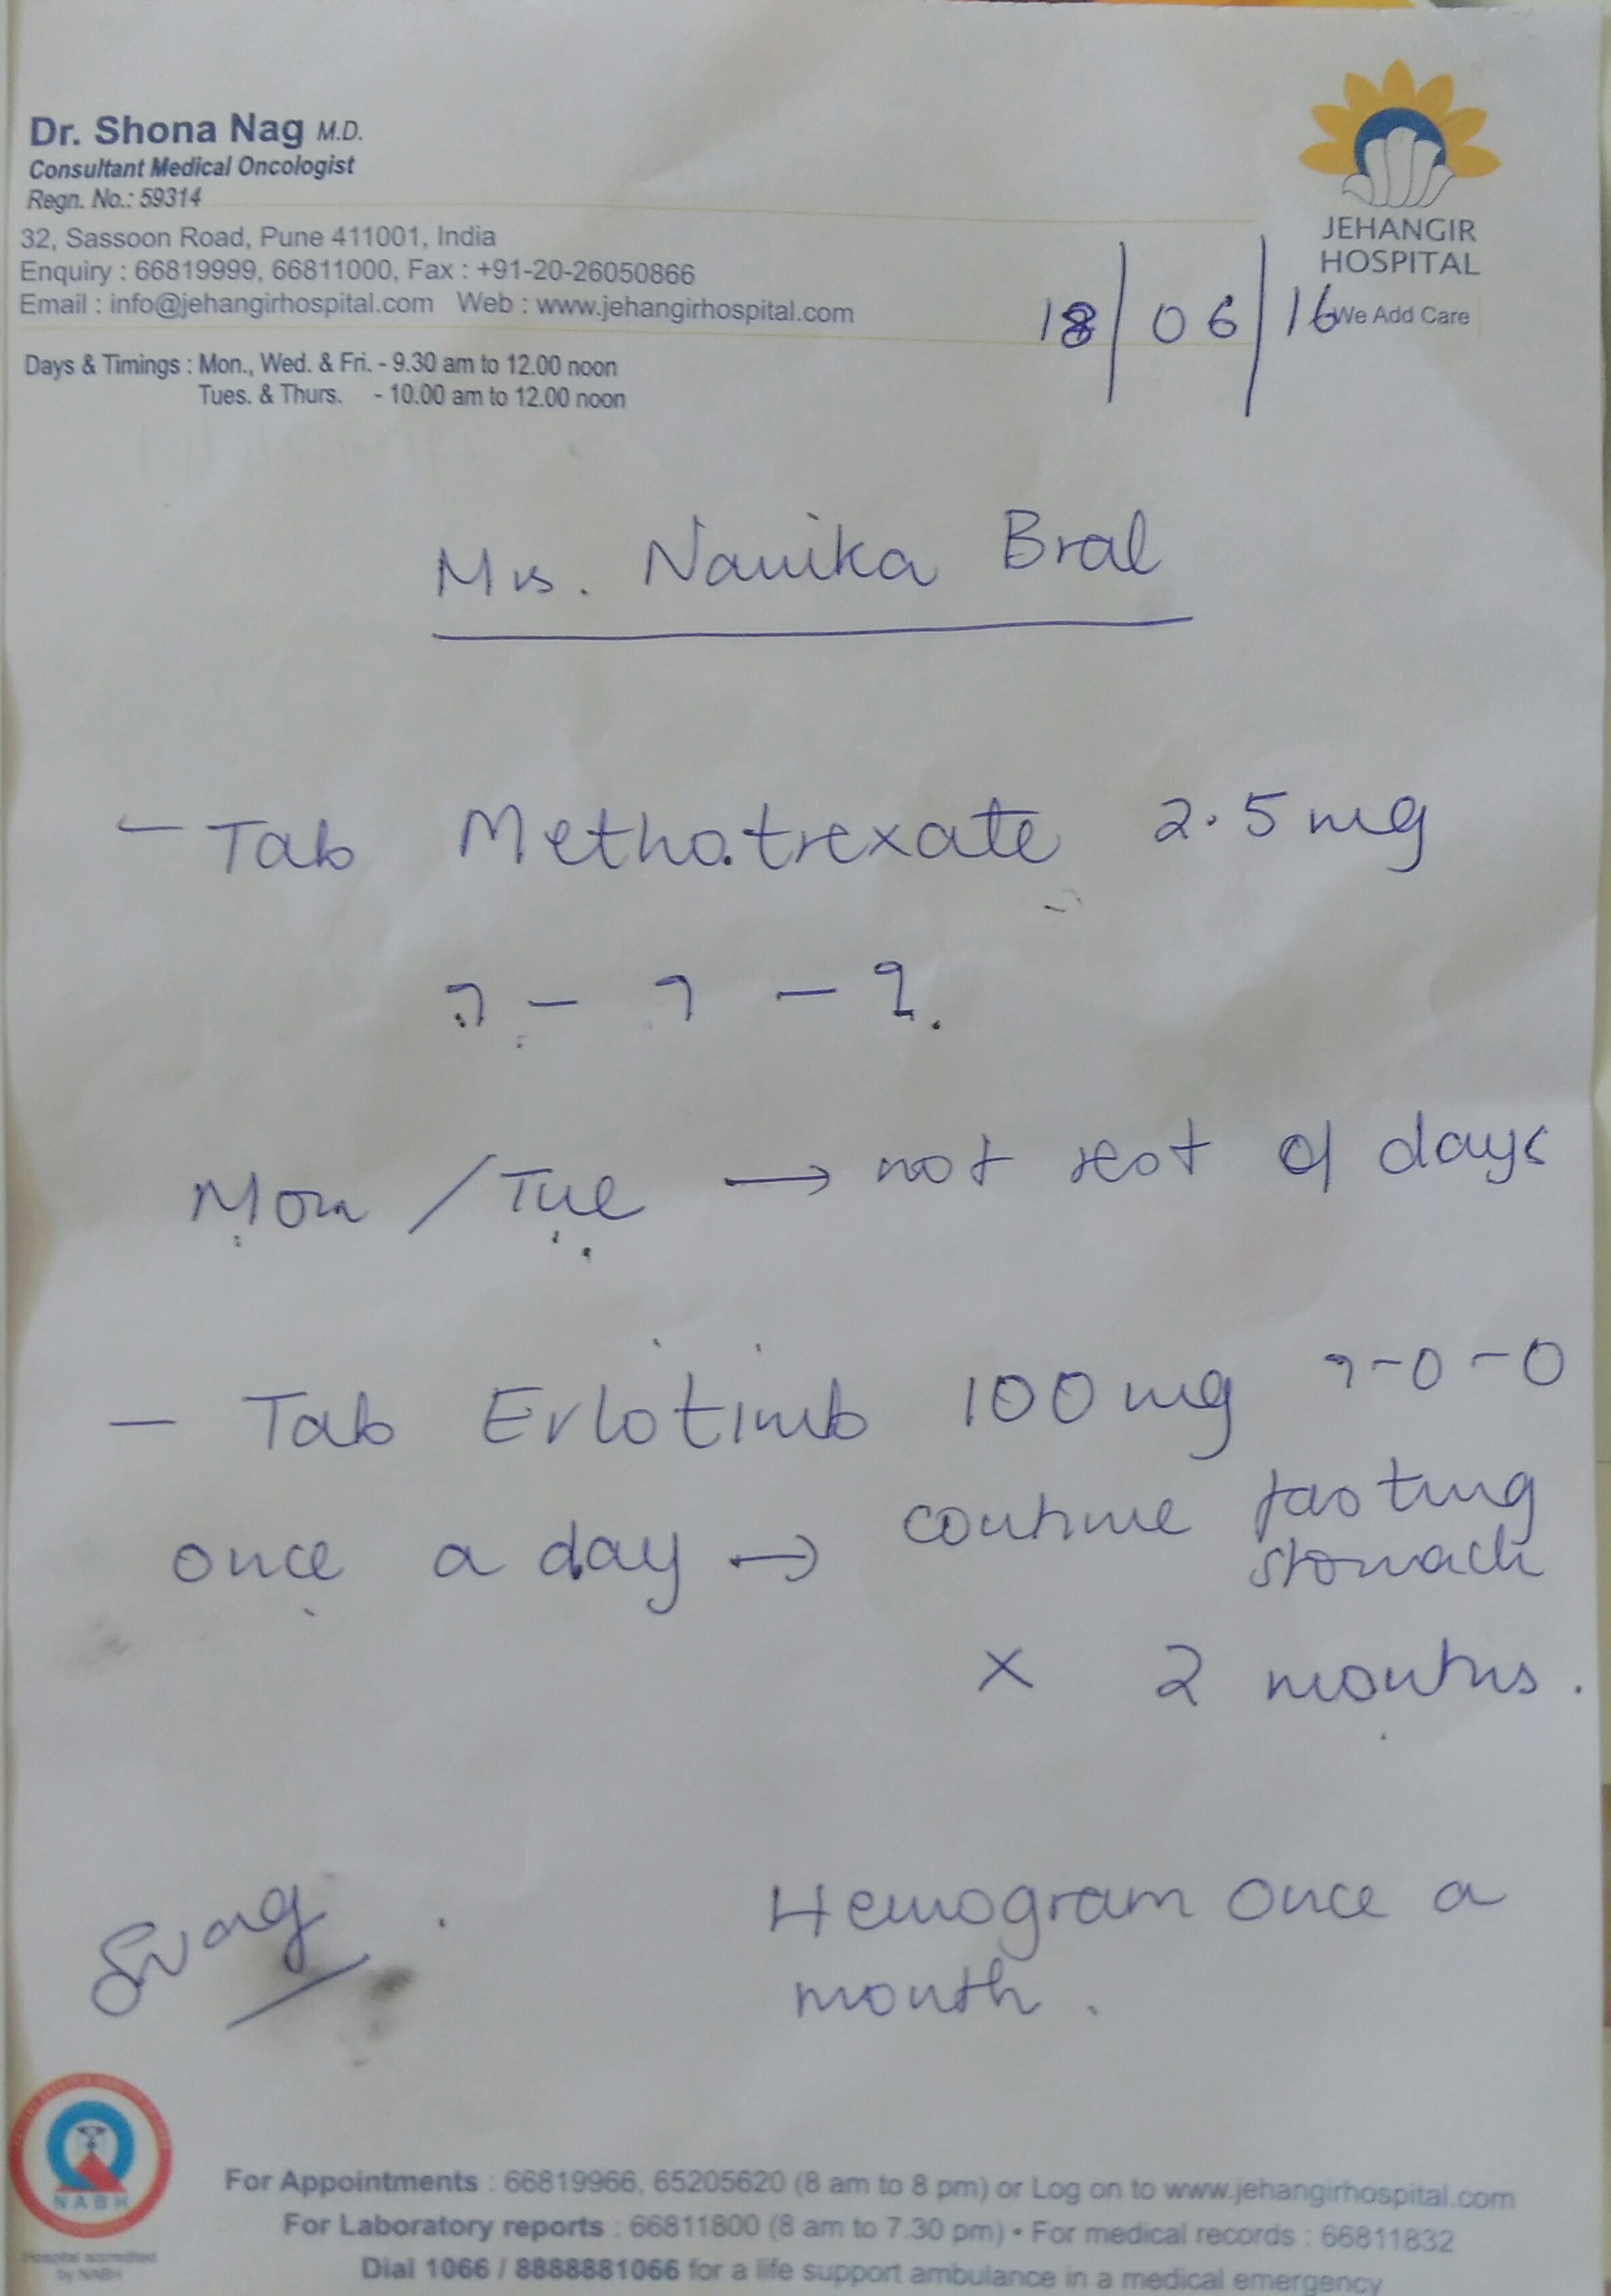 Dr. Shona Nag M.D.
Consultant Medical Oncologist
Regn. No.: 59314
32, Sassoon Road, Pune 411001, India
Enquiry : 66819999, 66811000, Fax : +91-20-26050866
Email : info@jehangirhospital.com Web : www.jehangirhospital.com
Days & Timings : Mon., Wed. & Fri. - 9.30 am to 12.00 noon
Tues. & Thurs. - 10.00 am to 12.00 noon
JEHANGIR
HOSPITAL
We Add Care
18/06/16
Mrs. Bral
- Tab Methotrexate 2.5 mg
Mon / Tue → not rest of days
- Tab Erlotinib 100 mg -0-0
once a day → continue fasting
stomach
x 2 months.
Hemogram once a
month.
NABH
Hospital accredited
by NABH
For Appointments : 66819966, 65205620 (8 am to 8 pm) or Log on to www.jehangirhospital.com
For Laboratory reports : 66811800 (8 am to 7.30 pm) • For medical records : 66811832
Dial 1066 / 8888881066 for a life support ambulance in a medical emergency